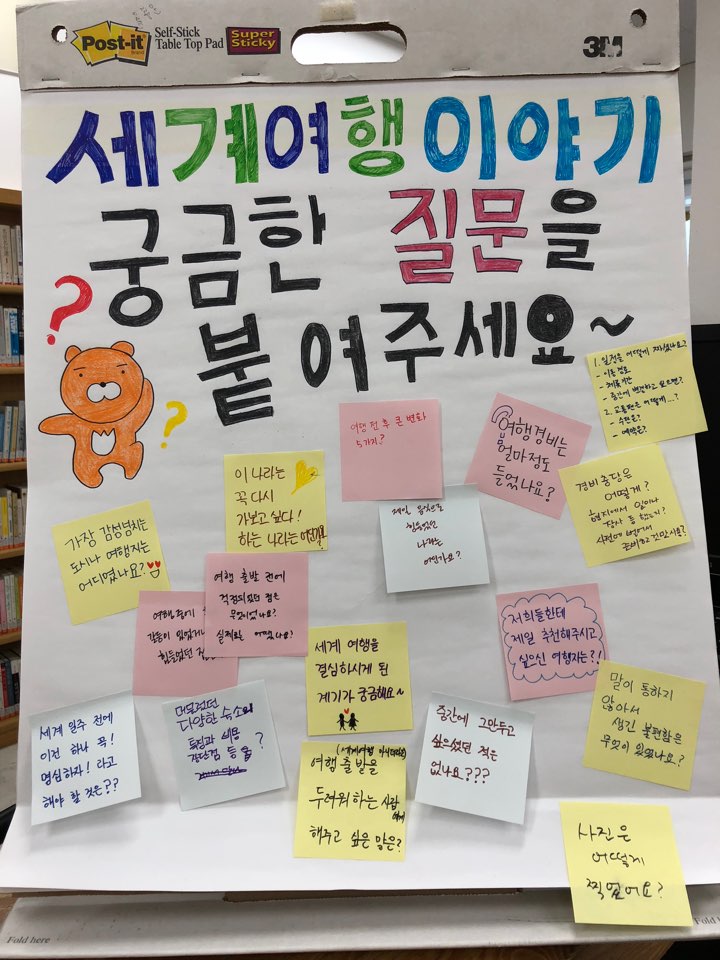 Post-it
Self-Stick
Table Top Pad
Super
Sticky
3M
세계여행 이야기
궁금한 질문을
붙여주세요~
?
?
1. 일정을 어떻게 짜셨나요?
- 이동경로
- 체류기간
- 중간에 변경하고 싶으면?
2. 교통편은 어떻게...?
- 수단은?
- 예약은?
여행 전 후 큰 변화
5가지?
여행경비는
얼마정도
들었나요?
이 나라는
꼭 다시
가보고 싶다!
하는 나라는
제일
나라는
어딘가요?
경비 충당은
어떻게?
현지에서 일이나
사전에 벌어서
가장 감명넘치는
도시나 여행지는
어디였나요?
여행 출발 전에
걱정되었던 점은
무엇이었나요?
실제로는 어땠나요?
여행중에
갈등이 있었거나
힘들었던
세계 여행을
결심하시게 된
계기가 궁금해요~
저희들한테
제일 추천해주시고
싶으신 여행지는?!
말이 통하지
않아서
생긴 불편함은
무엇이 있었나요?
세계 일주 전에
이건 하나 꼭!
명심하자! 라고
해야 할 것은??
머물렀던
다양한 숙소의
특징과 비용
장단점 등을?
(세계여행
여행 출발을
두려워하는 사람에게
해주고 싶은 말은?
중간에 그만두고
싶으셨던 적은
없나요???
사진은
어떻게
찍었어요?
Fold here
Fold h